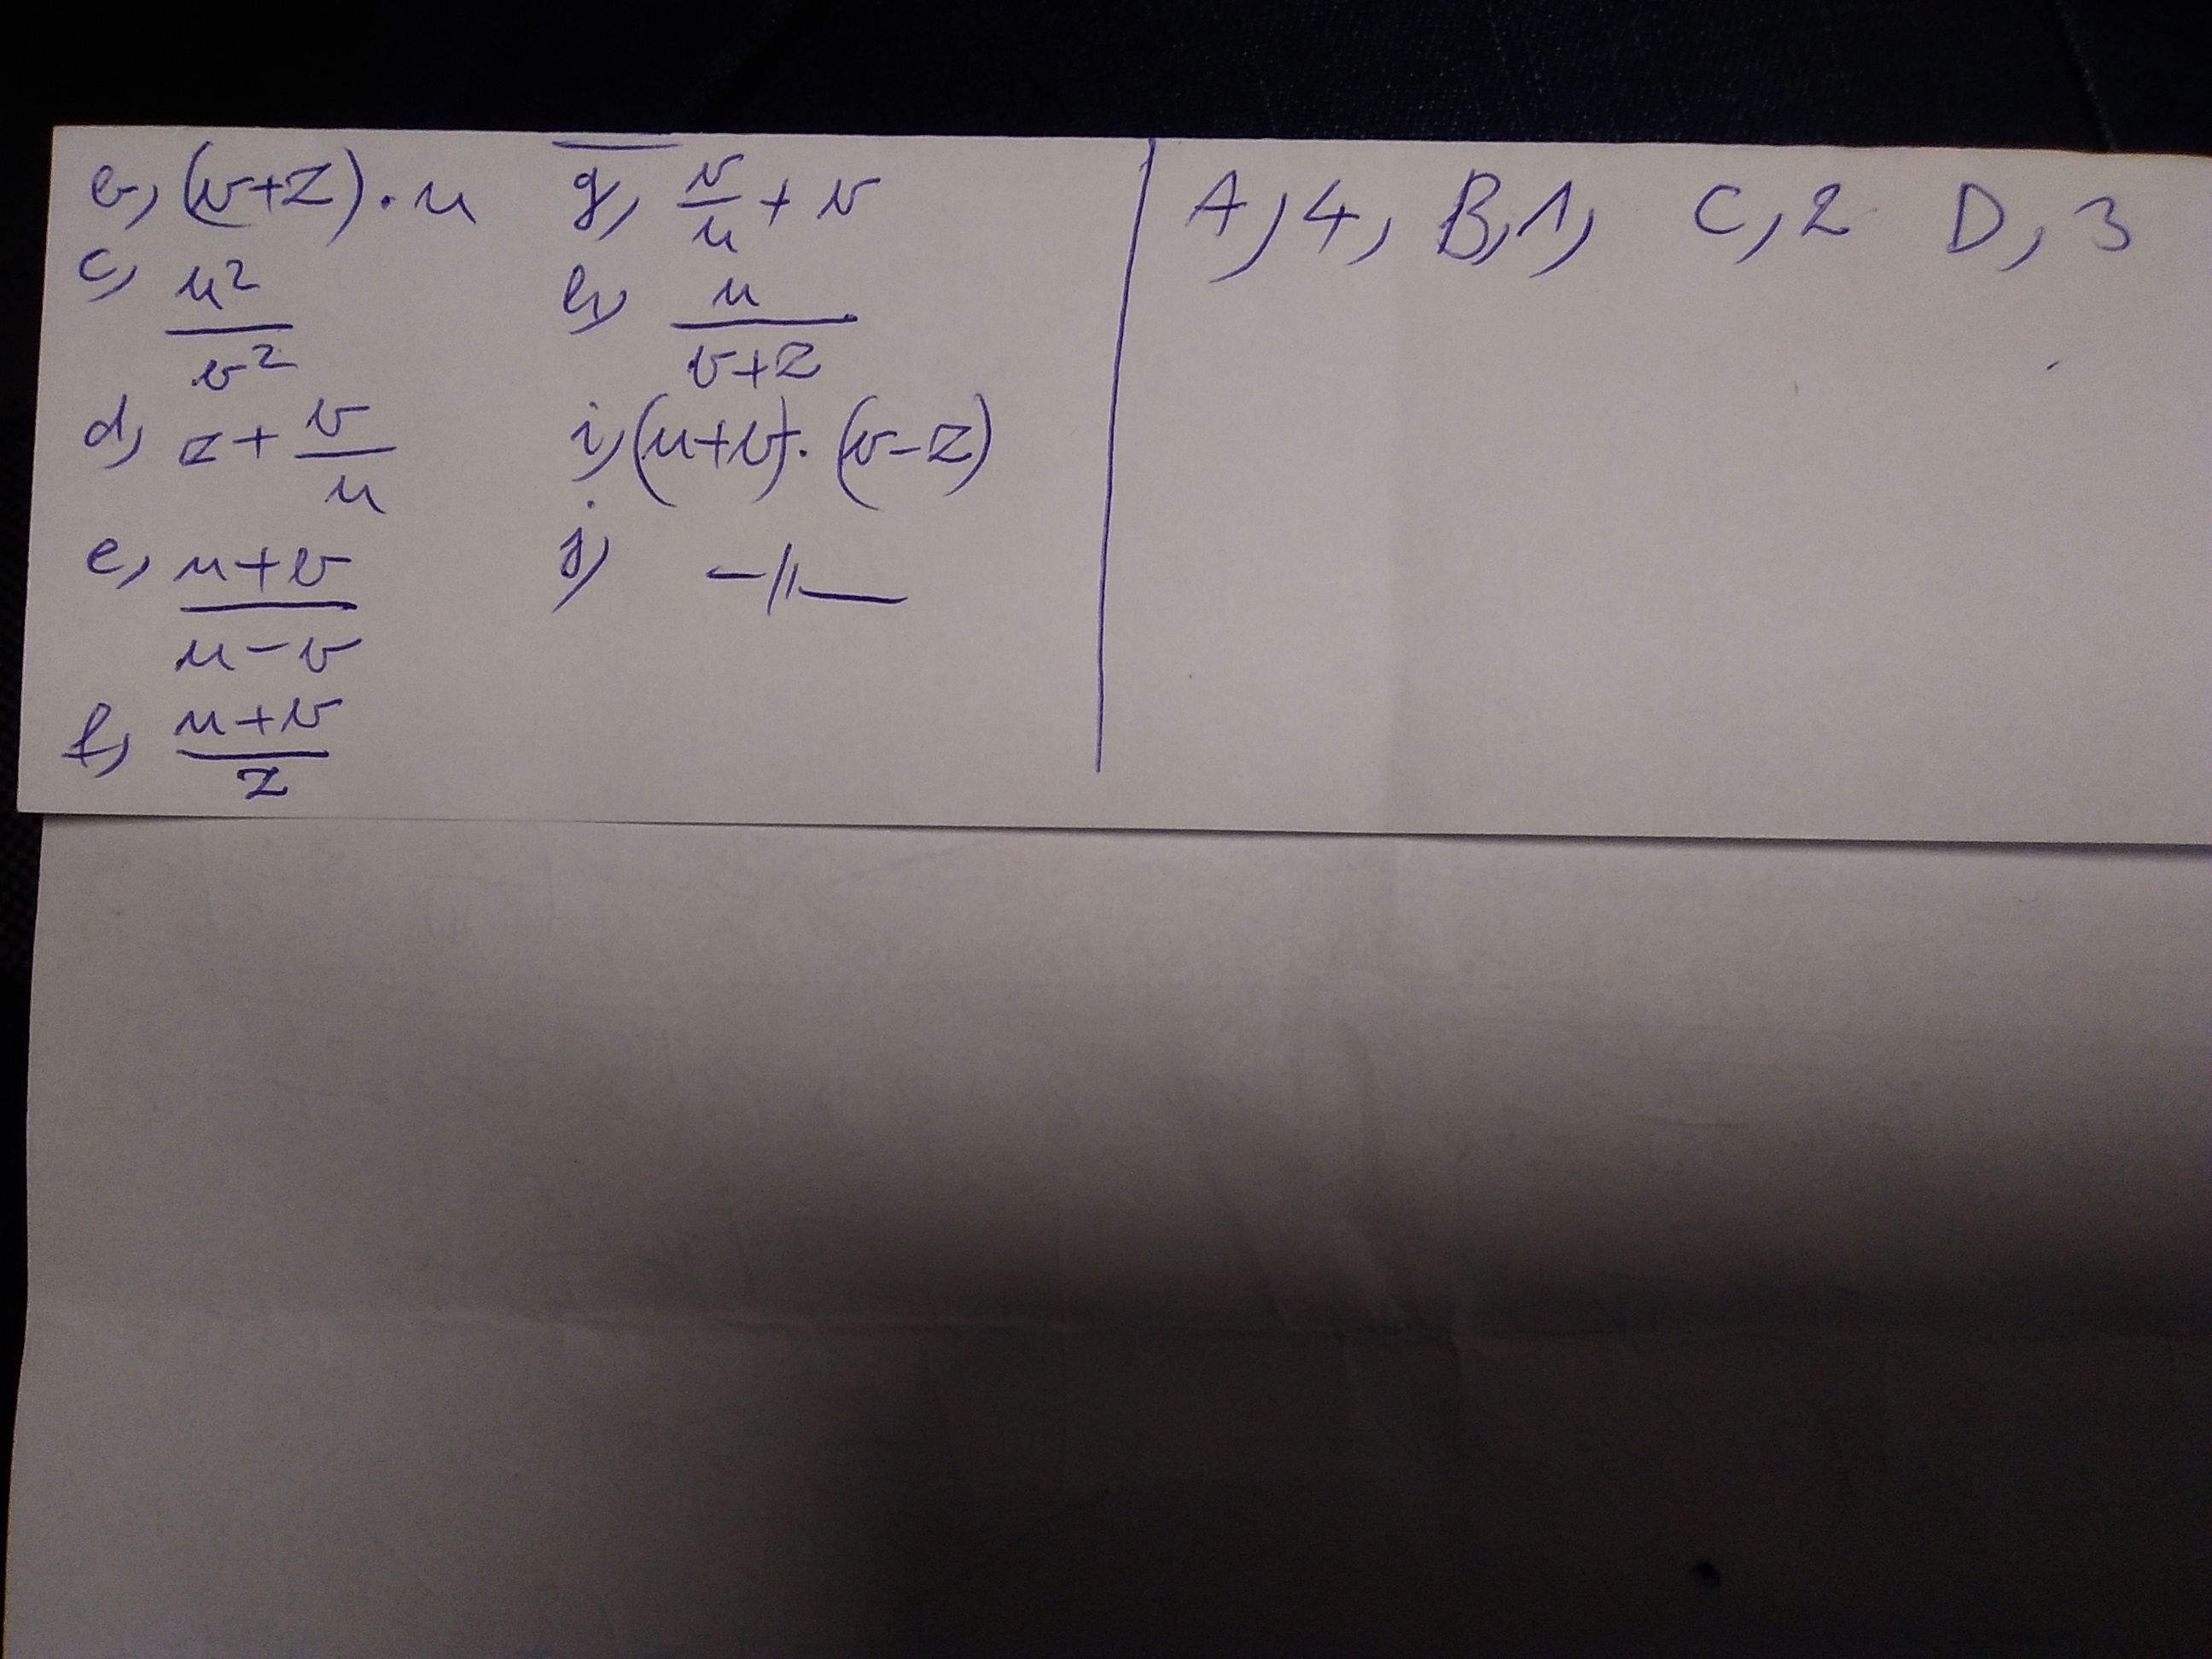 b, (v+z)·u
c, u²/v²
d, z + v/u
e, (u+v)/(u-v)
f, (u+v)/z
g, v/u + v
h, u/(v+z)
i, (u+v)·(v-z)
j, -//-
A, 4, B, 1, C, 2 D, 3